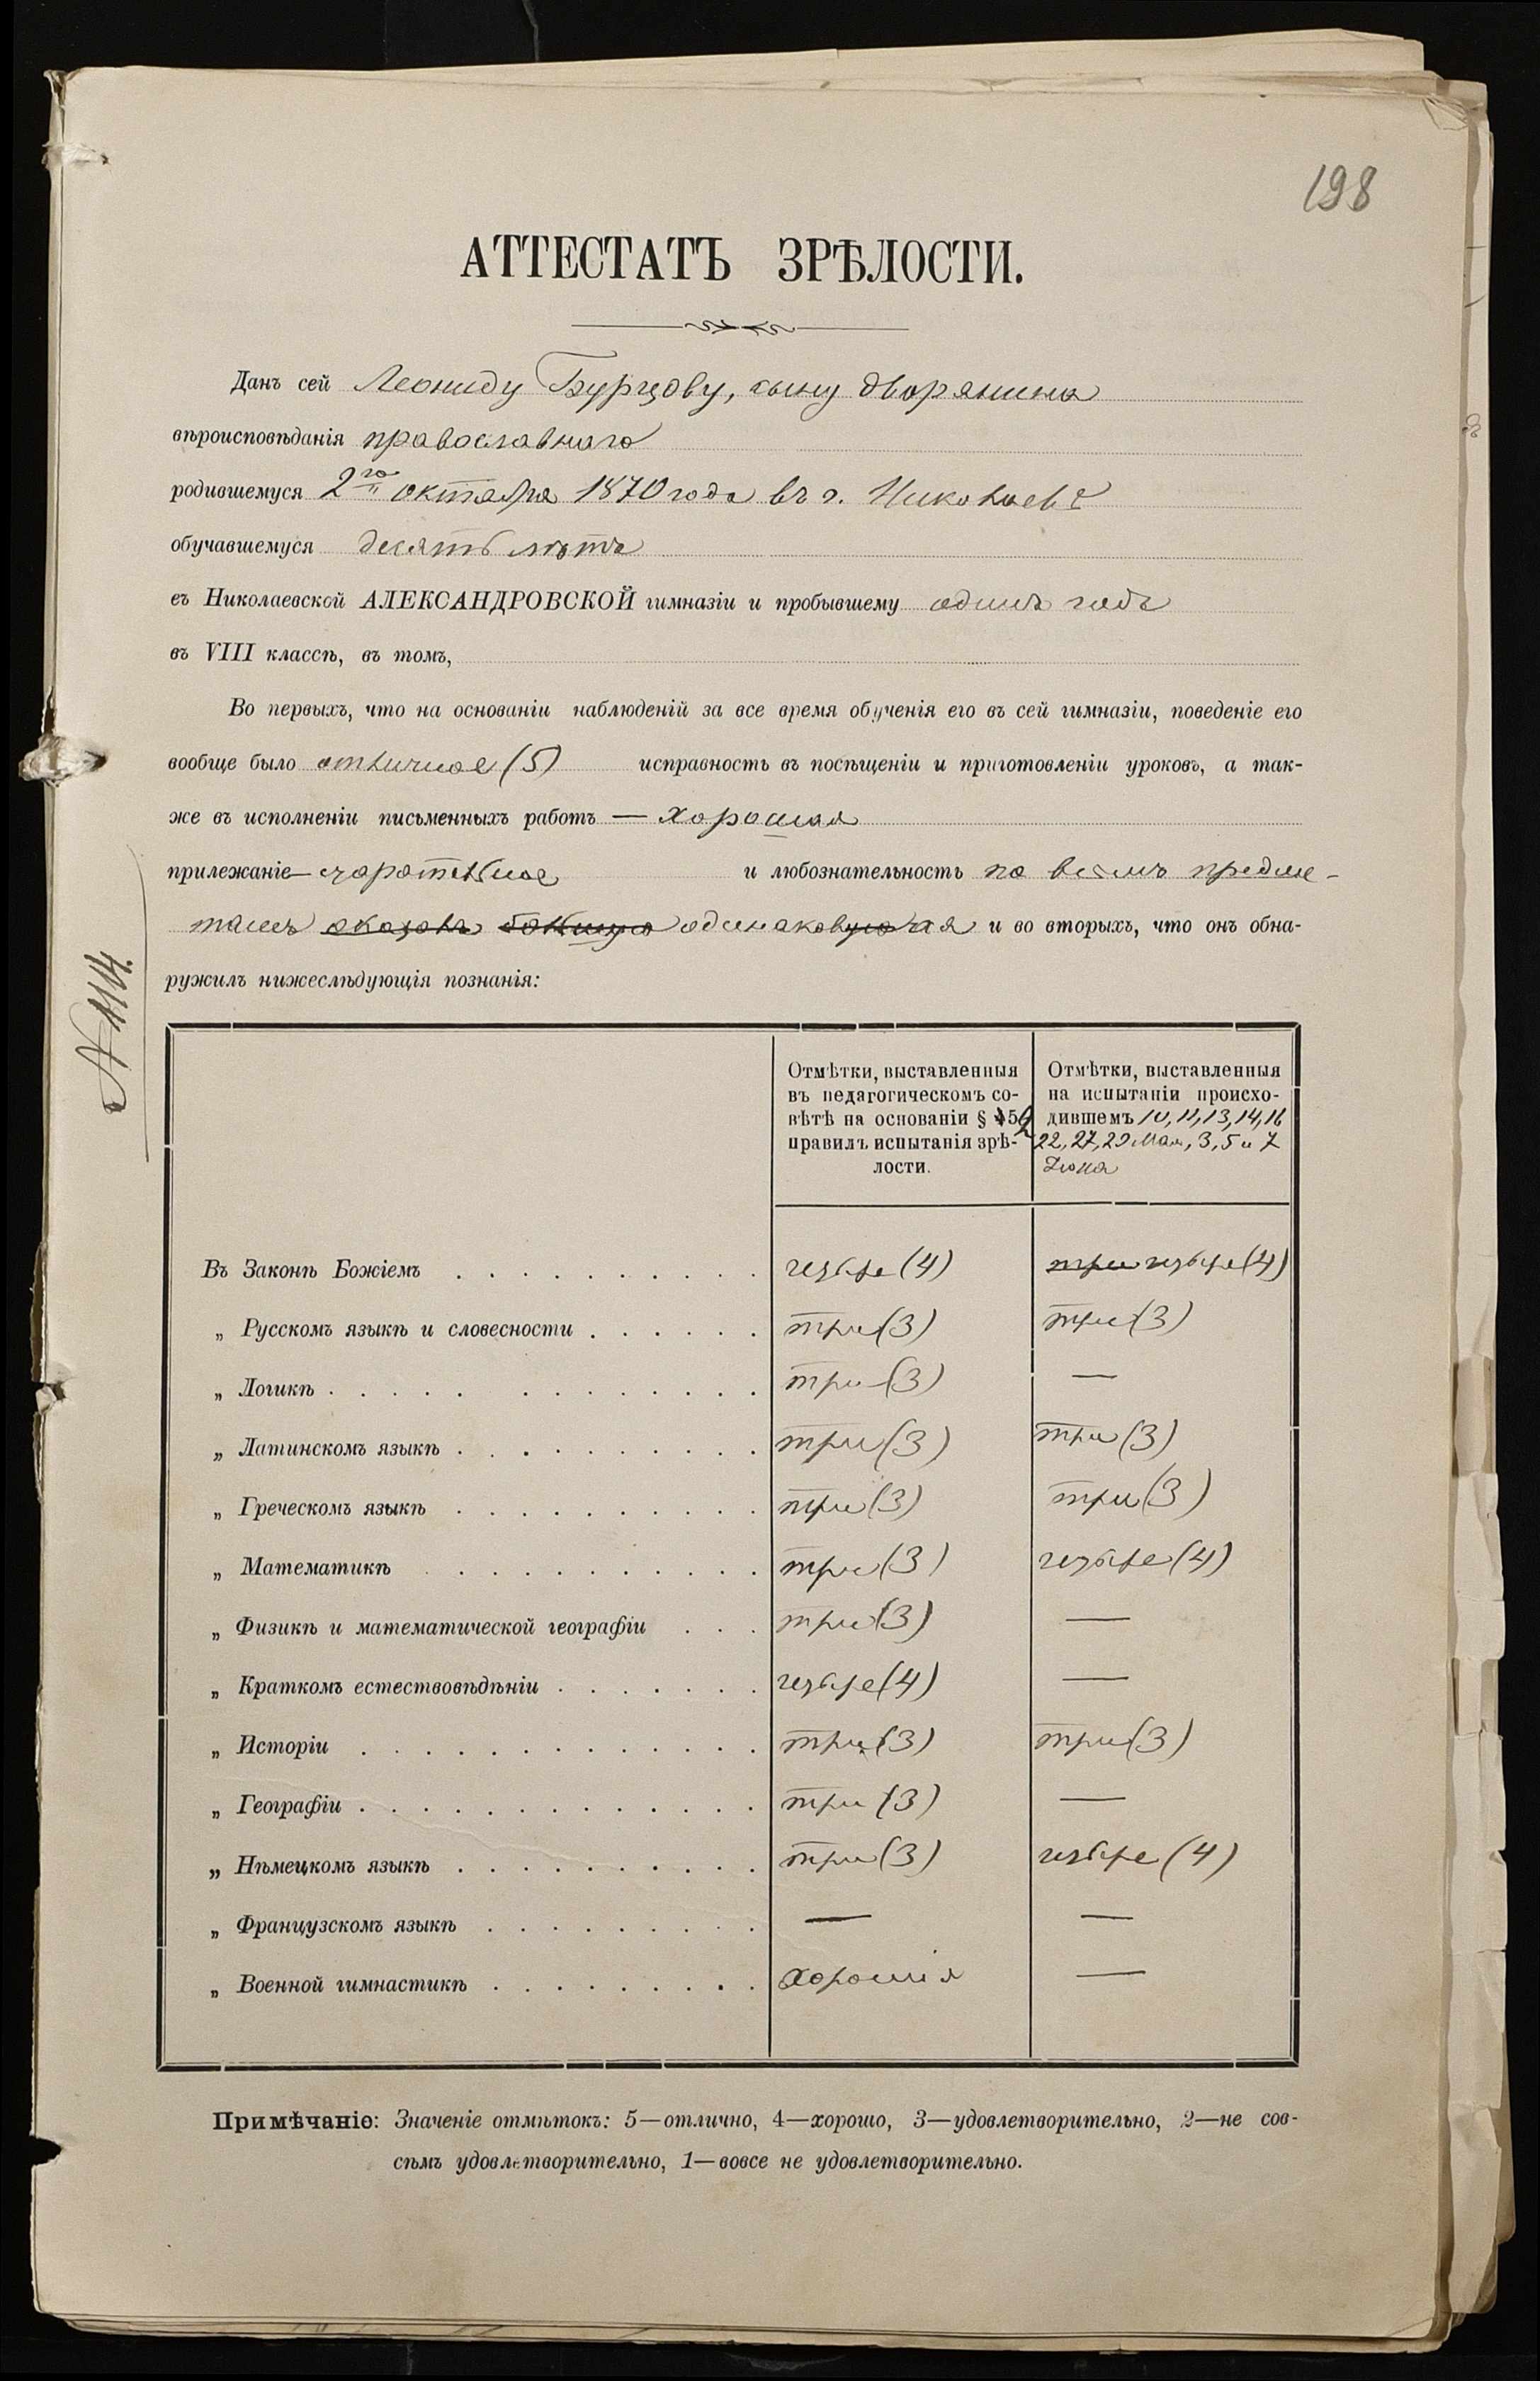 198
АТТЕСТАТЪ ЗРѢЛОСТИ.
Данъ сей Леониду Бурцову, сыну дворянина
вѣроисповѣданія православнаго
родившемуся 2го октября 1870 года въ г. Николаевѣ
обучавшемуся десять лѣтъ
въ Николаевской АЛЕКСАНДРОВСКОЙ гимназіи и пробывшему одинъ годъ
въ VIII классѣ, въ томъ,
Во первыхъ, что на основаніи наблюденій за все время обученія его въ сей гимназіи, поведеніе его
вообще было отличное (5) исправность въ посѣщеніи и приготовленіи уроковъ, а так-
же въ исполненіи письменныхъ работъ — хорошая
прилежаніе — старательное и любознательность по всѣмъ предме-
тамъ оказалъ большую одинаковую ая и во вторыхъ, что онъ обна-
ружилъ нижеслѣдующія познанія:
№ 1114.
Отмѣтки, выставленныя
въ педагогическомъ со-
вѣтѣ на основаніи §
правилъ испытанія зрѣ-
лости.
Отмѣтки, выставленныя
на испытаніи происхо-
дившемъ 10, 11, 13, 14, 16
22, 27, 29 Мая, 3, 5 и 7
Іюня
Въ Законѣ Божіемъ . . . . . . . . . . четыре (4) три четыре (4)
„ Русскомъ языкѣ и словесности . . . . . . три (3) три (3)
„ Логикѣ . . . . . . . . . . . . . три (3) —
„ Латинскомъ языкѣ . . . . . . . . . . три (3) три (3)
„ Греческомъ языкѣ . . . . . . . . . . три (3) три (3)
„ Математикѣ . . . . . . . . . . . три (3) четыре (4)
„ Физикѣ и математической географіи . . . три (3) —
„ Краткомъ естествовѣдѣніи . . . . . . . четыре (4) —
„ Исторіи . . . . . . . . . . . . . три (3) три (3)
„ Географіи . . . . . . . . . . . . . три (3) —
„ Нѣмецкомъ языкѣ . . . . . . . . . . три (3) четыре (4)
„ Французскомъ языкѣ . . . . . . . . . — —
„ Военной гимнастикѣ . . . . . . . . . хорошія —
Примѣчаніе: Значеніе отмѣтокъ: 5—отлично, 4—хорошо, 3—удовлетворительно, 2—не сов-
сѣмъ удовлетворительно, 1—вовсе не удовлетворительно.